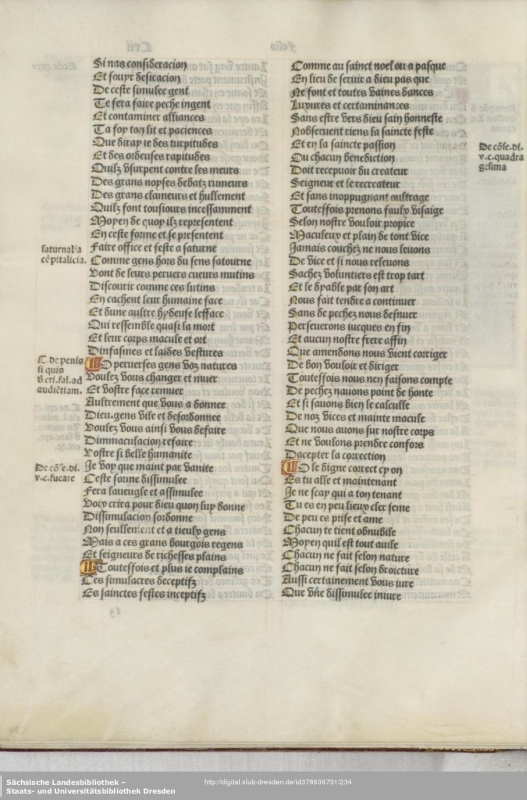 Si nas consideracion
Et soupt desicacion
De ceste simulee gent
Te fera faire peche ingent
Et contaminer alliances
Ta sop ton lit et paciences
Que diray ie des turpitudes
Et des ordeuses rapitudes
Quilz vsurpent contre les meurs
Des grans noyses debatz rumeurs
Des grans clameurs et hullement
Quilz font tousiours incessamment
Moyen de quoy ilz representent
En ceste forme et se presentent
Faire office et feste a saturne
Comme gens hors du sens satourne
Vont de leurs peruers cueurs mutins
Discourir comme ces lutins
En cachent leur humaine face
Et dune aultre hydeuse lefface
Qui ressemble quasi la mort
Et leur corps macule et ort
Dinfasmes et laides vestures
O peruerses gens voz natures
Voulez vous changer et muer
Et vostre face remuer
Aultrement que vous a donnee
Dieu. gens vile et desordonnee
Voulez vous ainsi vous deffaire
Dimmaculacion refaire
Vostre si belle humanite
Je voy que maint par vanite
Ceste forme dissimulee
Fera faueugle et assimulee
Voix crira pour dieu quon luy donne
Dissimulacion sordonne
Non seullement et a tieulx gens
Mais a ces grans bourgois regens
Et seigneurs de richesses plains
Toutesfois et plus ie complains
Ces simulacres deceptifz
Es sainctes festes inceptifz
saturnalia
cõpitalicia.
C. de penis
si quis
v cri. fal. ad
audictiam.
De cõse. di.
v. c. fucare
Comme au sainct noel ou a pasque
En lieu de seruir a dieu pas que
Ne font et toutes vaines dances
Luxures et certaminances
Sans estre vers dieu sain honneste
Nobseruent riens la saincte feste
Et en la saincte passion
Ou chacun benediction
Doit recepuoir du createur
Seigneur et le recreateur
Et sans inoppugnant oultrage
Toutesfois prenons faulx visaige
Selon nostre vouloir propice
Maculeux et plain de tout vice
Jamais couchez ne nous leuons
De vice et si nous releuons
Sachez voluntiers est trop tart
Et le dyable par son art
Nous fait tendre a continuer
Sans de pechez nous desnuer
Perseuerons iucques en fin
Et aucun nostre frere affin
Que amendons nous vient corriger
De bon vouloir et diriger
Toutesfois nous nen faisons compte
De pechez nauons point de honte
Et si sauons bien le calculle
De noz vices et mainte macule
Que nous auons sur nostre corps
Et ne voulons prendre confors
Daccepter la correction
O le digne correct cyon
Es tu alle et maintenant
Je ne scay qui a ton tenant
Tu es en peu lieux cler seme
De peu es prise et ame
Chacun te tient obnubile
Moyen quil est tout auile
Chacun ne fait selon nature
Chacun ne fait selon droicture
Aussi certainement vous iure
Que vñe dissimulee iniure
De cõse. di.
v. c. quadra
gesima
Sächsische Landesbibliothek –
Staats- und Universitätsbibliothek Dresden
http://digital.slub-dresden.de/id378636731/234